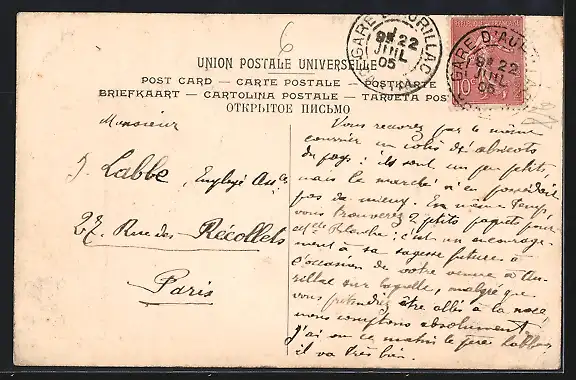 6
GARE D'AURILLAC
9E 22
JUIL
05
GARE D'AURILLAC
9E 22
JUIL
05
10
UNION POSTALE UNIVERSELLE
POST CARD — CARTE POSTALE — POSTKARTE
BRIEFKAART — CARTOLINA POSTALE — TARJETA POS
ОТКРЫТОЕ ПИСЬМО
Monsieur
J. Labbe, Employé
27 Rue des Récollets
Paris
Vous recevrez par le même
courrier un colis d'abricots
du pays : ils sont un peu petits,
mais le marché n'en possédait
pas de mieux. En même temps,
vous trouverez 2 petits paquets pour
Mlle Blanche : c'est un encourage-
ment à sa sagesse future à
l'occasion de votre venue à Au-
rillac sur laquelle, malgré que
vous prétendiez être allés à la noce,
nous comptons absolument.
J'ai vu ce matin le père Labbe,
il va très bien.